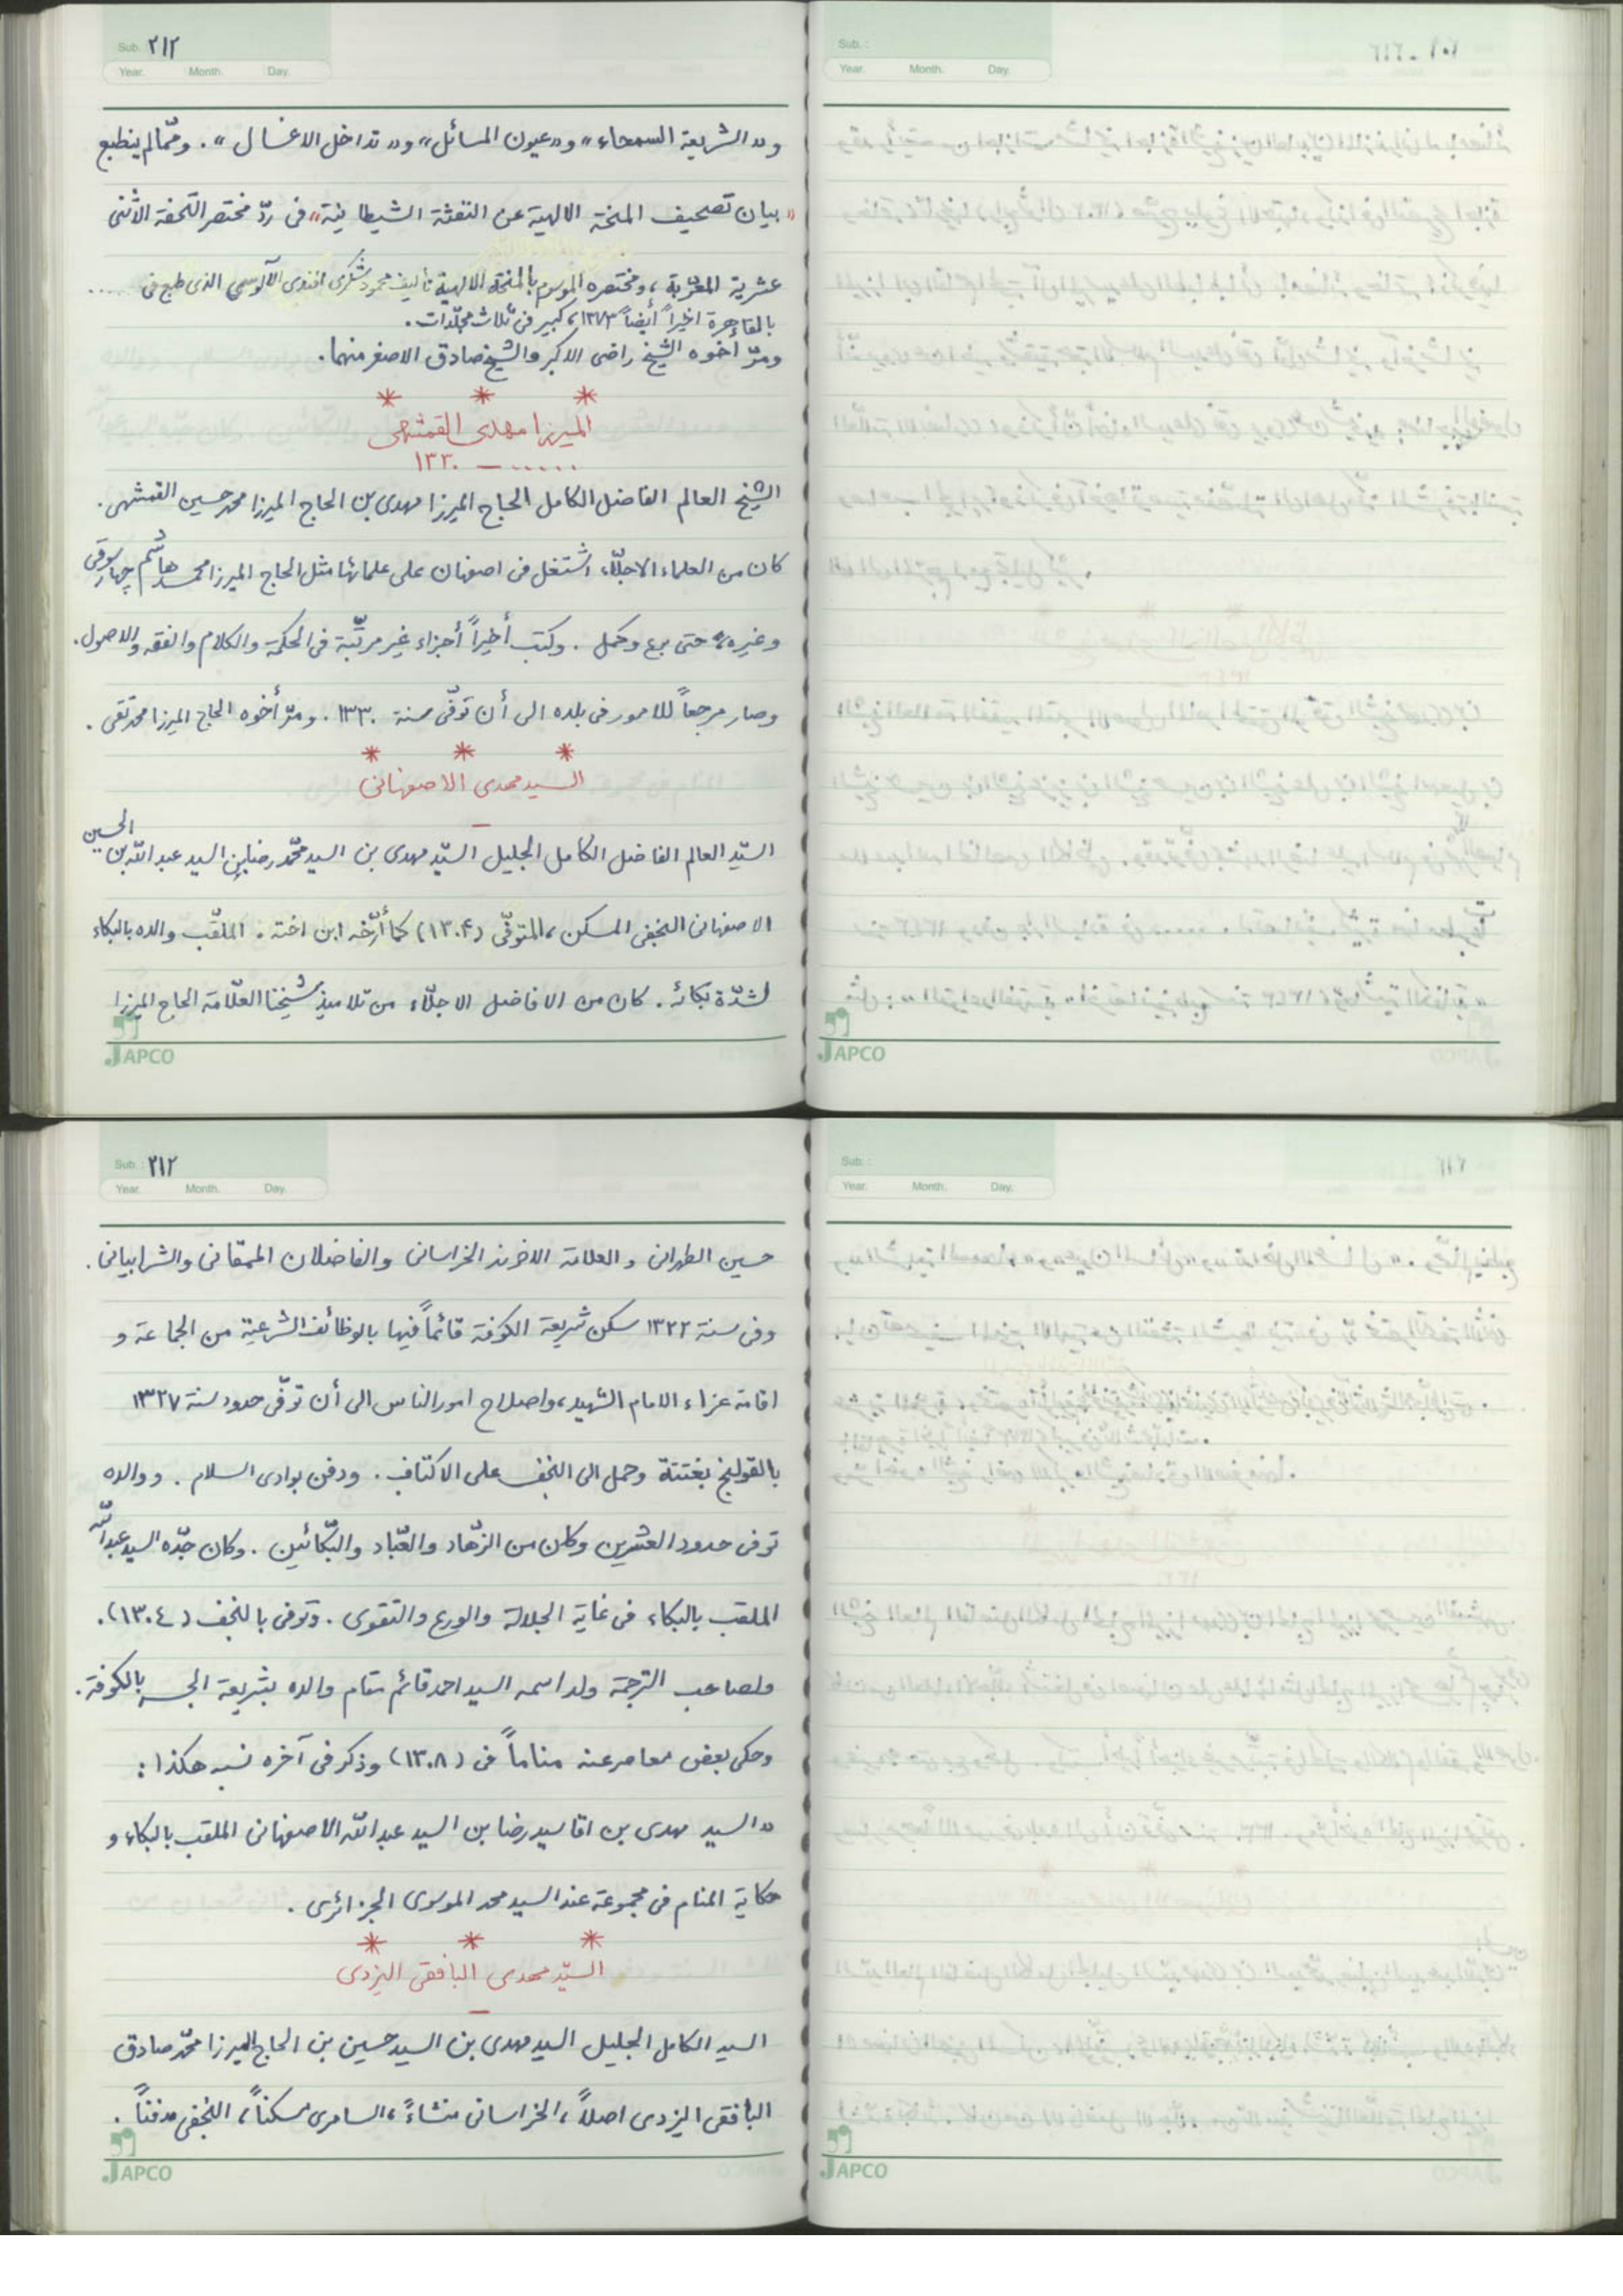 Sub. ۲۱۲
Year. Month. Day.
و «الشریعة السمحاء» و «عیون المسائل» و «تداخل الاغسال» . وممّا لم ینطبع
«بیان تصحیف المنحة الالهیة عن النفثة الشیطانیة» فی ردّ مختصر التحفة الأثنی
عشریة المعرّبة، ومختصره الموسوم بالمنحة الالهیة تألیف محمود شکری افندی الآلوسی الذی طبع فی .....
بالقاهرة اخیراً أیضاً ۱۳۷۳، کبیر فی ثلاث مجلّدات .
ومرّ أخوه الشیخ راضی الاکبر والشیخ صادق الاصغر منهما .
* * *
المیرزا مهدی القمشهی
...... – ۱۳۳۰
الشیخ العالم الفاضل الکامل الحاج المیرزا مهدی بن الحاج المیرزا محمد حسین القمشهی .
کان من العلماء الاجلّاء، اشتغل فی اصفهان علی علمائها مثل الحاج المیرزا محمد هاشم چهارسوقی
وغیره، حتی برع وکمل . وکتب أخیراً أجزاء غیر مرتّبة فی الحکمة والکلام والفقه والاصول .
وصار مرجعاً للامور فی بلده الی أن توفّی سنة ۱۳۳۰ . ومرّ أخوه الحاج المیرزا محمد تقی .
* * *
السید مهدی الاصفهانی
–
السیّد العالم الفاضل الکامل الجلیل السیّد مهدی بن السید محمّد رضا بن السید عبد اللّه بن الحسین
الاصفهانی النجفی المسکن، المتوفّی (۱۳۰۴) کما أرّخه ابن اخته . الملقّب والده بالبکاء
لشدّة بکائه . کان من الافاضل الاجلّاء من تلامیذ شیخنا العلّامة الحاج المیرزا
JAPCO
Sub. :
Year. Month. Day.
JAPCO
Sub. : ۲۱۲
Year. Month. Day.
حسین الطهرانی و العلامة الاخوند الخراسانی والفاضلان الممقانی والشرابیانی .
وفی سنة ۱۳۲۲ سکن شریعة الکوفة قائماً فیها بالوظائف الشرعیة من الجماعة و
اقامة عزاء الامام الشهید، واصلاح امور الناس الی أن توفّی حدود سنة ۱۳۲۷
بالقولنج بغتتة وحمل الی النجف علی الاکتاف . ودفن بوادی السلام . ووالده
توفی حدود العشرین وکان من الزهّاد والعبّاد والبکّائین . وکان جدّه السید عبد اللّه
الملقب بالبکاء فی غایة الجلالة والورع والتقوی . وتوفی بالنجف (۱۳۰٤) .
ولصاحب الترجمة ولد اسمه السید احمد قائم مقام والده بشریعة الجسر بالکوفة .
وحکی بعض معاصر عنه مناماً فی (۱۳۰۸) وذکر فی آخره نسبه هکذا :
«السید مهدی بن اقا سید رضا بن السید عبد اللّه الاصفهانی الملقب بالبکاء و
حکایة المنام فی مجموعة عند السید محمد الموسوی الجزائری .
* * *
السیّد مهدی البافقی الیزدی
–
السید الکامل الجلیل السید مهدی بن السید حسین بن الحاج المیرزا محمّد صادق
البافقی الیزدی اصلاً، الخراسانی منشاءً، السامری مسکناً، النجفی مدفناً .
JAPCO
Sub. :
Year. Month. Day.
JAPCO